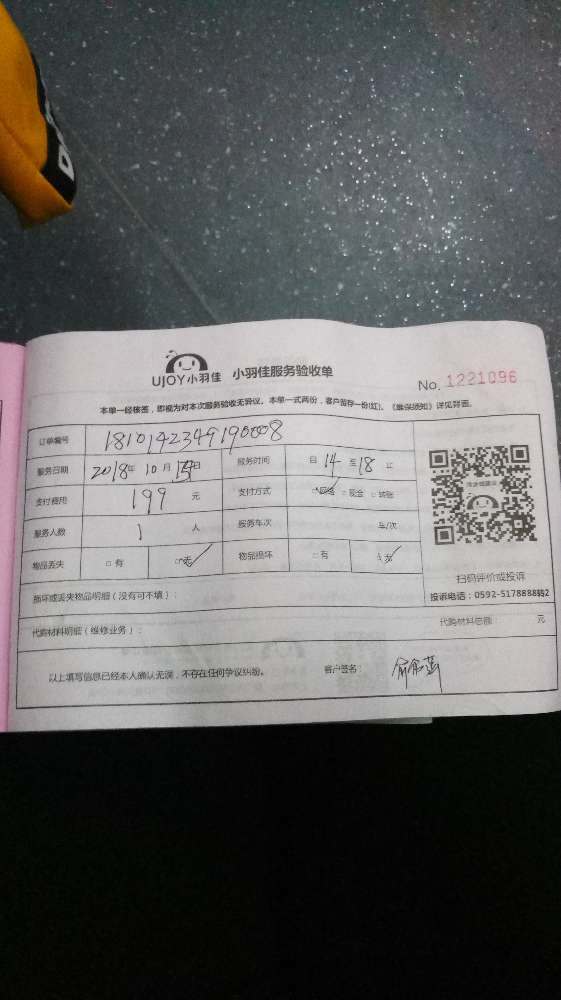 UJOY小羽佳 小羽佳服务验收单
No. 1221096
本单一经核签，即视为对本次服务验收无异议。本单一式两份，客户留存一份(红)。《维保须知》详见背面。
订单编号 1810142349190008
服务日期 2018年 10月 日 服务时间 自 14 至 18 止
支付费用 199 元 支付方式 网络 □现金 □转账
服务人数 1 人 服务车次 车/次
物品丢失 □有 □无 物品损坏 □有 □无
扫码评价或投诉
投诉电话：0592-5178888转2
损坏或丢失物品明细（没有可不填）：
代购材料明细（维修业务）： 代购材料总额 元
以上填写信息已经本人确认无误，不存在任何争议纠纷。 客户签名：